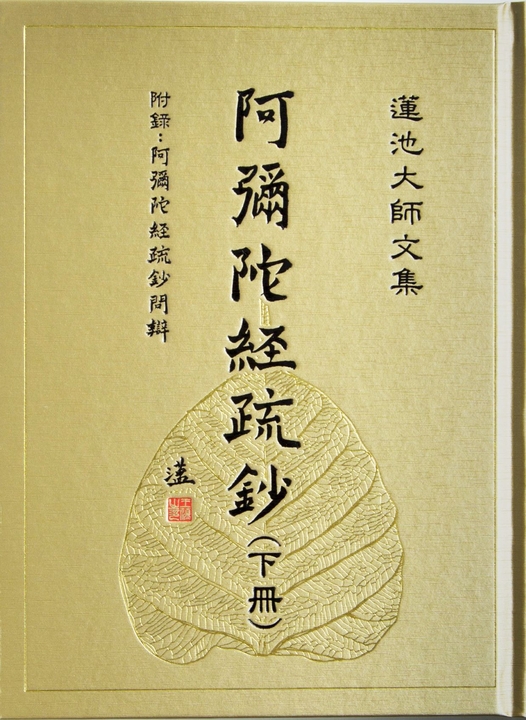 蓮池大師文集
阿彌陀經疏鈔(下冊)
附錄：阿彌陀經疏鈔問辯